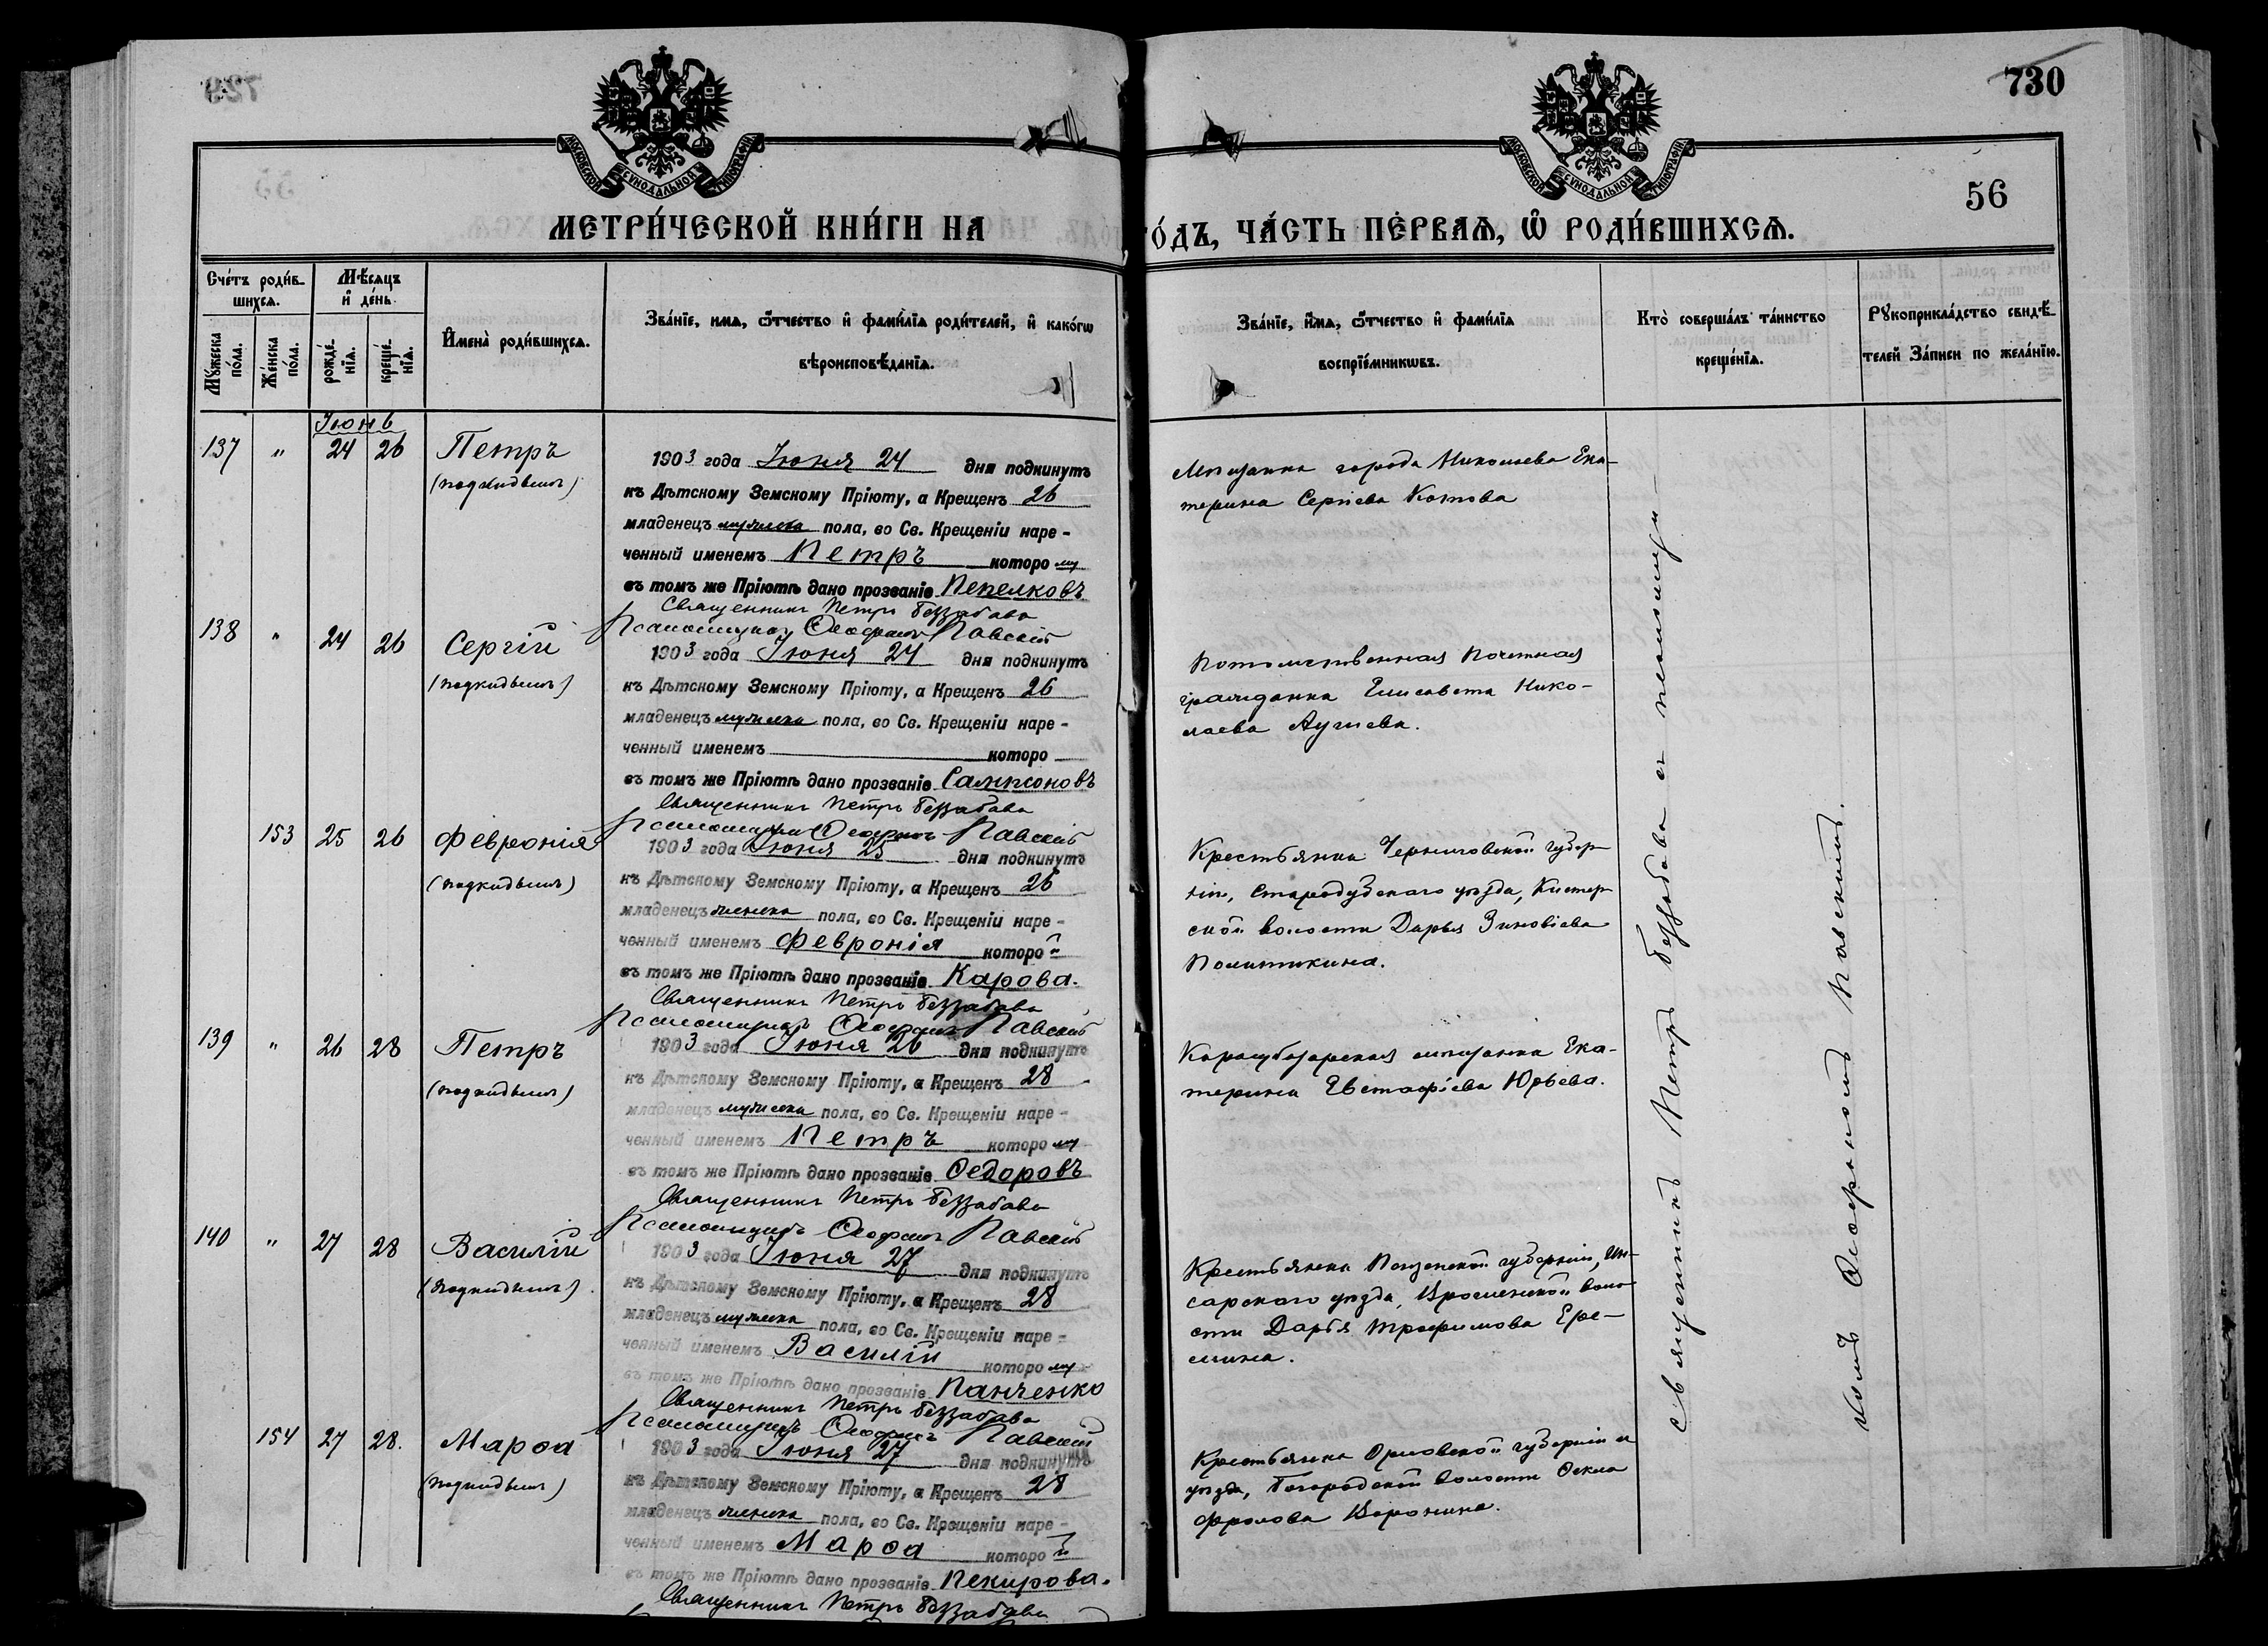 730
56
МОСКОВСКОЙ СУНОДАЛЬНОЙ ТИПОГРАФІИ
МОСКОВСКОЙ СУНОДАЛЬНОЙ ТИПОГРАФІИ
МЕТРИ́ЧЕСКОЙ КНИ́ГИ НА
ГО́ДЪ, ЧА́СТЬ ПЕ́РВАѦ, Ѽ РОДИ́ВШИХСѦ.
Сче́тъ роди́в-
шихсѧ.
Мꙋ́жеска по́ла.
Же́нска по́ла.
Мѣ́сѧцъ
и҆ де́нь
рожде́-
нїѧ.
креще́-
нїѧ.
И҆мена̀ роди́вшихсѧ.
Зва́нїе, имѧ, ѻ҆́тчество и҆ фами́лїѧ роди́телей, и҆ како́гѡ
вѣроисповѣ́данїѧ.
Зва́нїе, и҆́мѧ, ѻ҆́тчество и҆ фами́лїѧ
воспрїе́мникѡвъ.
Кто̀ соверша́лъ та́инство
креще́нїѧ.
Рꙋкоприкла́дство свидѣ́-
телей за́писи по жела́нїю.
Іюнь
137 " 24 26 Петръ
(подкидышъ)
1903 года Іюня 24 дня подкинутъ
къ Дѣтскому Земскому Пріюту, а Крещенъ 26
младенецъ мужеска пола, во Св. Крещеніи наре-
ченный именемъ Петръ которому
въ томъ же Пріютѣ дано прозваніе Пепелковъ
Священникъ Петръ Беззабава
Псаломщикъ Ѳеофанъ Павскій
Мѣщанка города Николаева Ека-
терина Сергіева Котова
138 " 24 26 Сергій
(подкидышъ)
1903 года Іюня 24 дня подкинутъ
къ Дѣтскому Земскому Пріюту, а Крещенъ 26
младенецъ мужеска пола, во Св. Крещеніи наре-
ченный именемъ которо
въ томъ же Пріютѣ дано прозваніе Сампсоновъ
Священникъ Петръ Беззабава
Псаломщикъ Ѳеофанъ Павскій
Потомственная Почетная
гражданка Елисавета Нико-
лаева
153 25 26 Февронія
(подкидышъ)
1903 года Іюня 25 дня подкинутъ
къ Дѣтскому Земскому Пріюту, а Крещенъ 26
младенецъ женска пола, во Св. Крещеніи наре-
ченный именемъ Февронія которой
въ томъ же Пріютѣ дано прозваніе Карова.
Священникъ Петръ Беззабава
Псаломщикъ Ѳеофанъ Павскій
Крестьянка Черниговской губер-
ніи, Стародубскаго уѣзда, Кистер-
ской волости Дарья Зиновіева
Политикина.
139 " 26 28 Петръ
(подкидышъ)
1903 года Іюня 26 дня подкинутъ
къ Дѣтскому Земскому Пріюту, а Крещенъ 28
младенецъ мужеска пола, во Св. Крещеніи наре-
ченный именемъ Петръ которому
въ томъ же Пріютѣ дано прозваніе Ѳедоровъ
Священникъ Петръ Беззабава
Псаломщикъ Ѳеофанъ Павскій
Карасубазарская мѣщанка Ека-
терина Евстафіева Юрьева.
140 " 27 28 Василій
(подкидышъ)
1903 года Іюня 27 дня подкинутъ
къ Дѣтскому Земскому Пріюту, а Крещенъ 28
младенецъ мужеска пола, во Св. Крещеніи наре-
ченный именемъ Василій которому
въ томъ же Пріютѣ дано прозваніе Панченко
Священникъ Петръ Беззабава
Псаломщикъ Ѳеофанъ Павскій
Крестьянка Пензенской губерніи, Ин-
сарскаго уѣзда, воло-
сти Дарья Трофимова Ере-
мина.
154 27 28. Марѳа
(подкидышъ)
1903 года Іюня 27 дня подкинутъ
къ Дѣтскому Земскому Пріюту, а Крещенъ 28
младенецъ женска пола, во Св. Крещеніи наре-
ченный именемъ Марѳа которой
въ томъ же Пріютѣ дано прозваніе Пекирова.
Священникъ Петръ Беззабава
Крестьянка Орловской губерніи и
уѣзда, Богородской волости Ѳекла
Фролова Воронина.
Священникъ Петръ Беззабава съ псаломщи-
комъ Ѳеофаномъ Павскимъ.